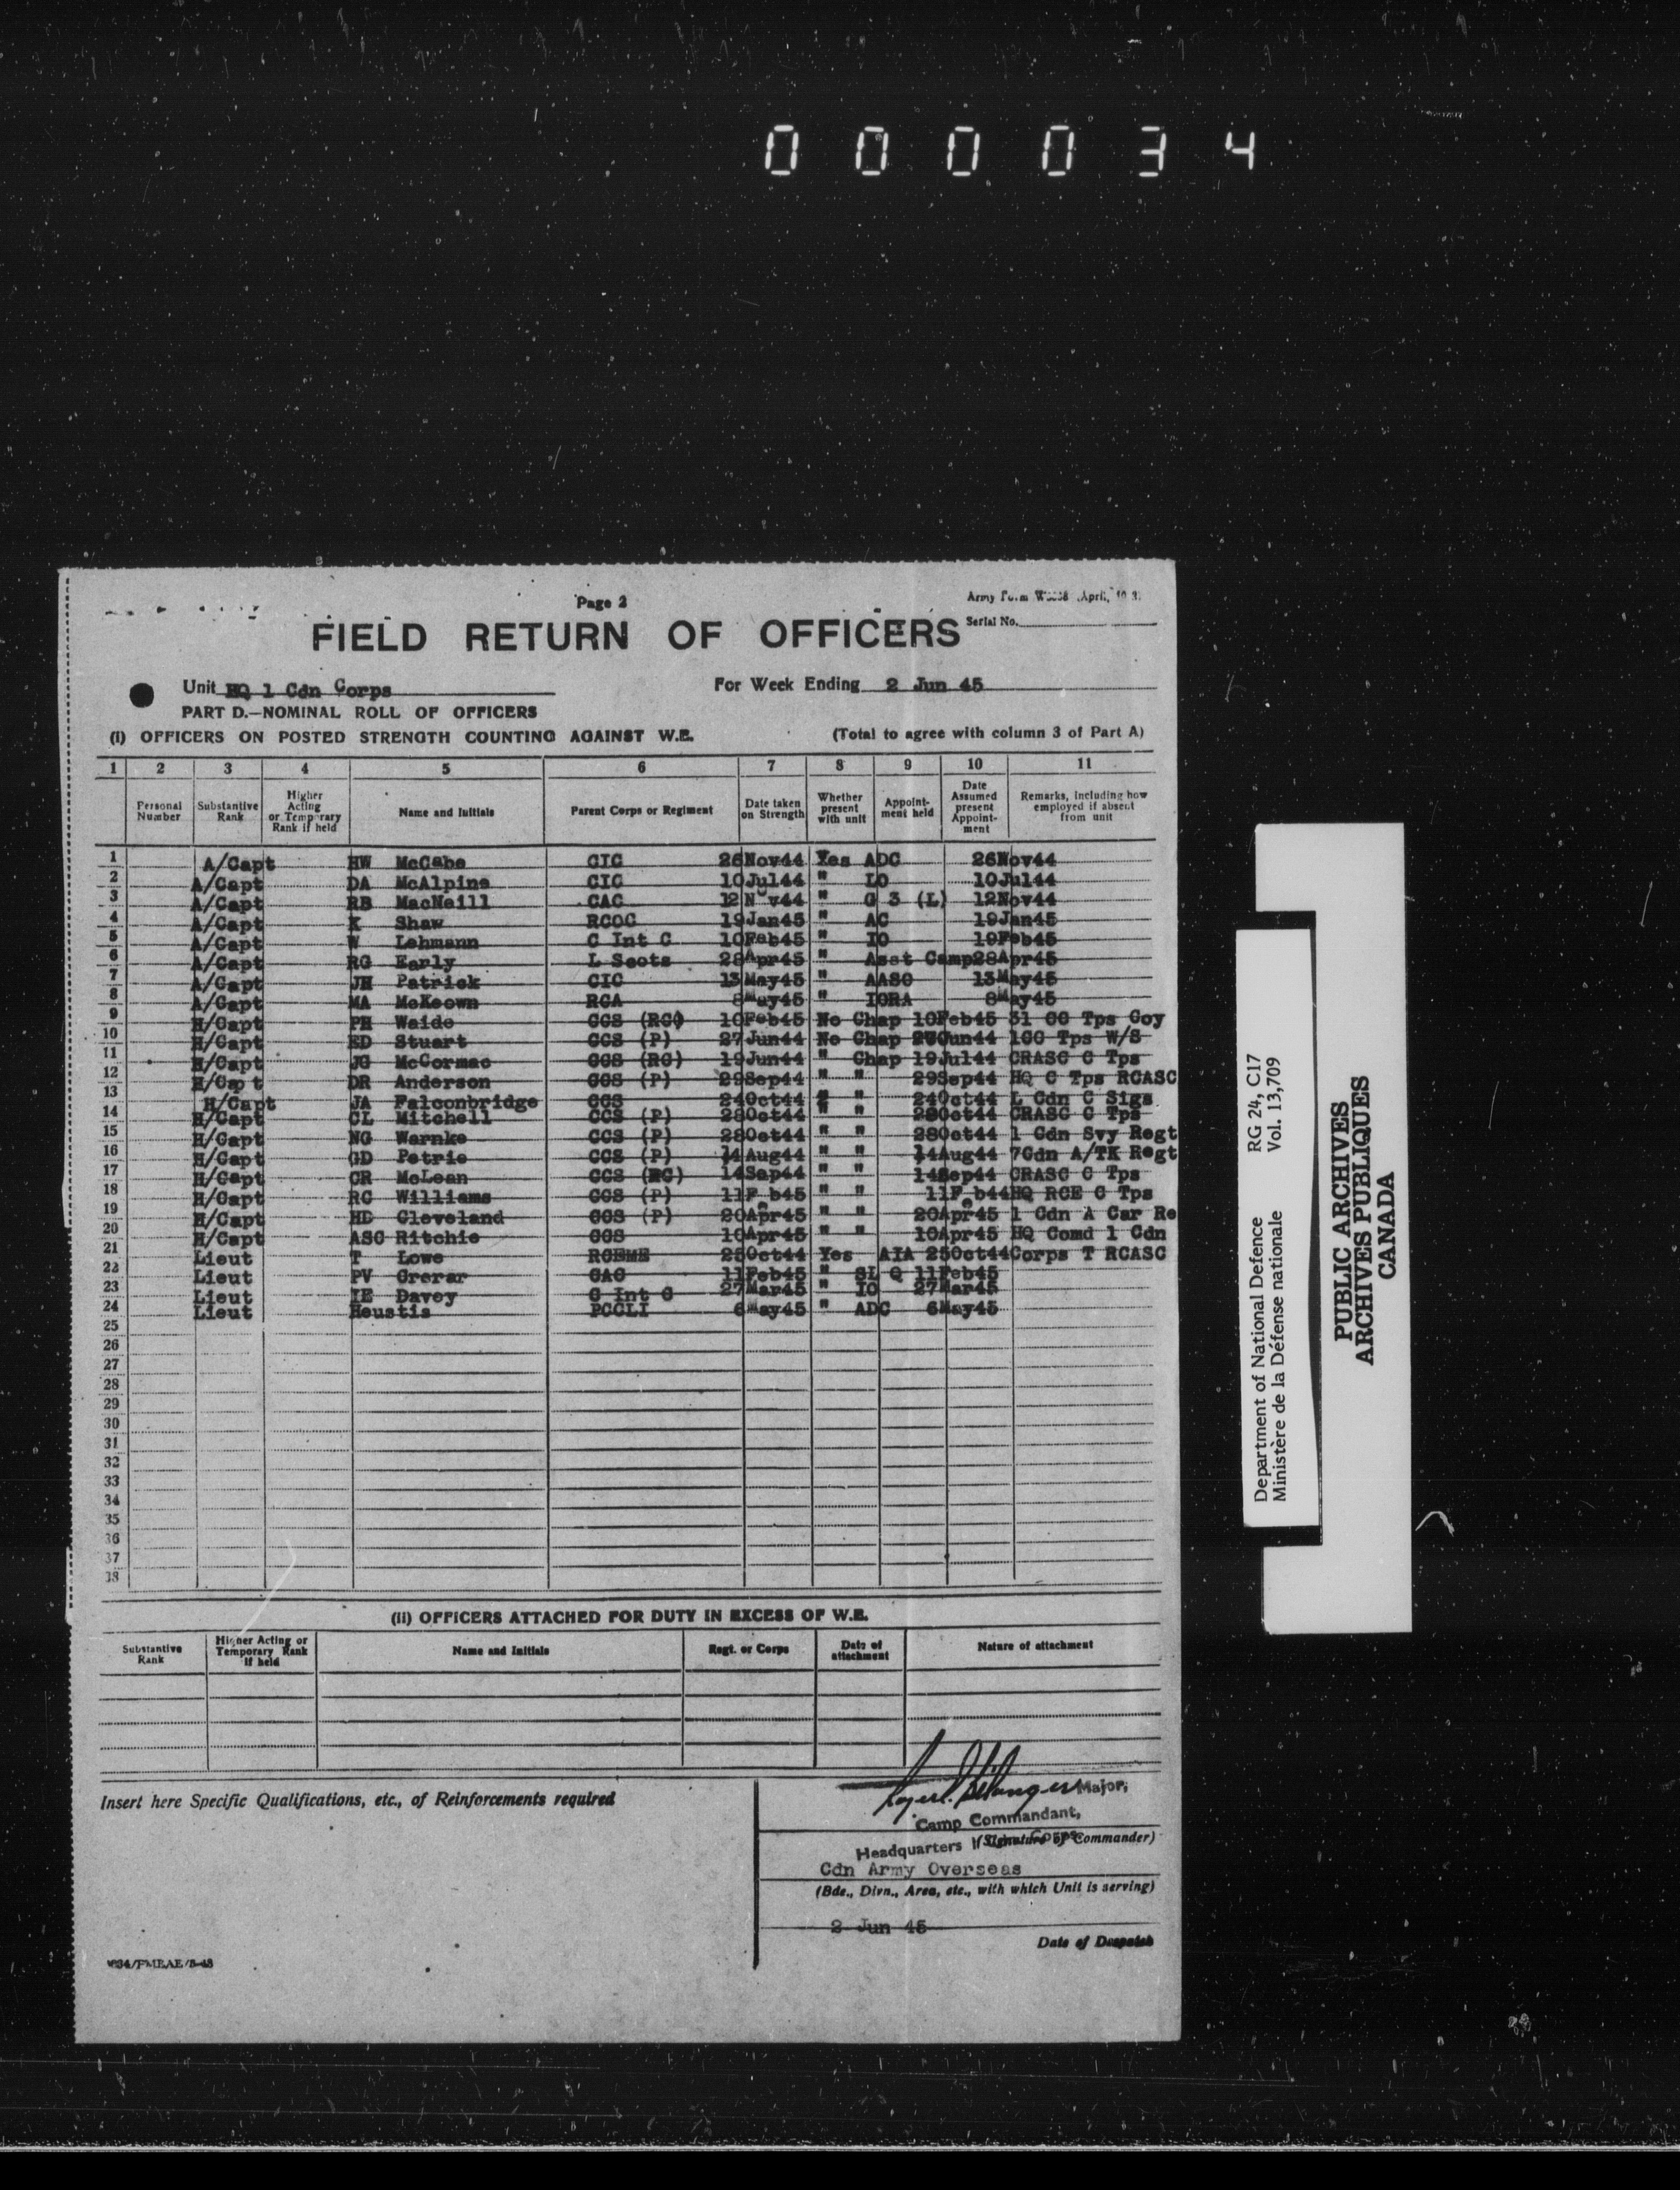 000034
Page 2
Army Form
Serial No.
FIELD RETURN OF OFFICERS
Unit HQ 1 Cdn Corps
For Week Ending 2 Jun 45
PART D.—NOMINAL ROLL OF OFFICERS
(i) OFFICERS ON POSTED STRENGTH COUNTING AGAINST W.E. (Total to agree with column 3 of Part A)
1 2 3 4 5 6 7 8 9 10 11
Personal Number Substantive Rank Higher Acting or Temporary Rank if held Name and Initials Parent Corps or Regiment Date taken on Strength Whether present with unit Appoint-ment held Date Assumed present Appoint-ment Remarks, including how employed if absent from unit
1 A/Capt HW McCabe CIC 26Nov44 Yes ADC 26Nov44
2 A/Capt DA McAlpine CIC 10Jul44 " LO 10Jul44
3 A/Capt RB MacNeill CAC 12Nov44 " G 3 (L) 12Nov44
4 A/Capt K Shaw RCOC 19Jan45 " AC 19Jan45
5 A/Capt W Lehmann C Int C 10Feb45 " IO 19Feb45
6 A/Capt RG Early L Scots 28Apr45 " Asst Camp 28Apr45
7 A/Capt JH Patrick CIC 13May45 " AASO 13May45
8 A/Capt MA McKeown RCA 8May45 " IORA 8May45
9 H/Capt PH Waide CCS (RC) 10Feb45 No Chap 10Feb45 31 CC Tps Coy
10 H/Capt ED Stuart CCS (P) 27Jun44 No Chap 27Jun44 1CC Tps W/S
11 H/Capt JG McCormac CCS (RC) 19Jun44 " Chap 19Jul44 CRASC C Tps
12 H/Cap t DR Anderson CCS (P) 29Sep44 " " 29Sep44 HQ C Tps RCASC
13 H/Capt JA Falconbridge CCS 24Oct44 " " 24Oct44 L Cdn C Sigs
14 H/Capt CL Mitchell CCS (P) 28Oct44 " " 28Oct44 CRASC C Tps
15 H/Capt NG Warnke CCS (P) 28Oct44 " " 28Oct44 1 Cdn Svy Regt
16 H/Capt GD Petrie CCS (P) 14Aug44 " " 14Aug44 7Cdn A/TK Regt
17 H/Capt CR McLean CCS (RC) 14Sep44 " " 14Sep44 CRASC C Tps
18 H/Capt RC Williams CCS (P) 11Feb45 " " 11Feb44 HQ RCE C Tps
19 H/Capt HD Cleveland CCS (P) 20Apr45 " " 20Apr45 1 Cdn A Car Re
20 H/Capt ASC Ritchie CCS 10Apr45 " " 10Apr45 HQ Comd 1 Cdn
21 Lieut T Lowe RCEME 25Oct44 Yes AIA 25Oct44 Corps T RCASC
22 Lieut PV Crerar CAC 11Feb45 " SL Q 11Feb45
23 Lieut IE Davey C Int C 27Mar45 " IO 27Mar45
24 Lieut Heustis PCCLI 6May45 " ADC 6May45
25
26
27
28
29
30
31
32
33
34
35
36
37
38
(ii) OFFICERS ATTACHED FOR DUTY IN EXCESS OF W.E.
Substantive Rank Higher Acting or Temporary Rank if held Name and Initials Regt. or Corps Date of attachment Nature of attachment
Insert here Specific Qualifications, etc., of Reinforcements required
Major,
Camp Commandant,
Headquarters 1 Corps
(Signature of Commander)
Cdn Army Overseas
(Bde., Divn., Area, etc., with which Unit is serving)
2 Jun 45
Date of Despatch
Department of National Defence RG 24, C17
Ministère de la Défense nationale Vol. 13,709
PUBLIC ARCHIVES
ARCHIVES PUBLIQUES
CANADA